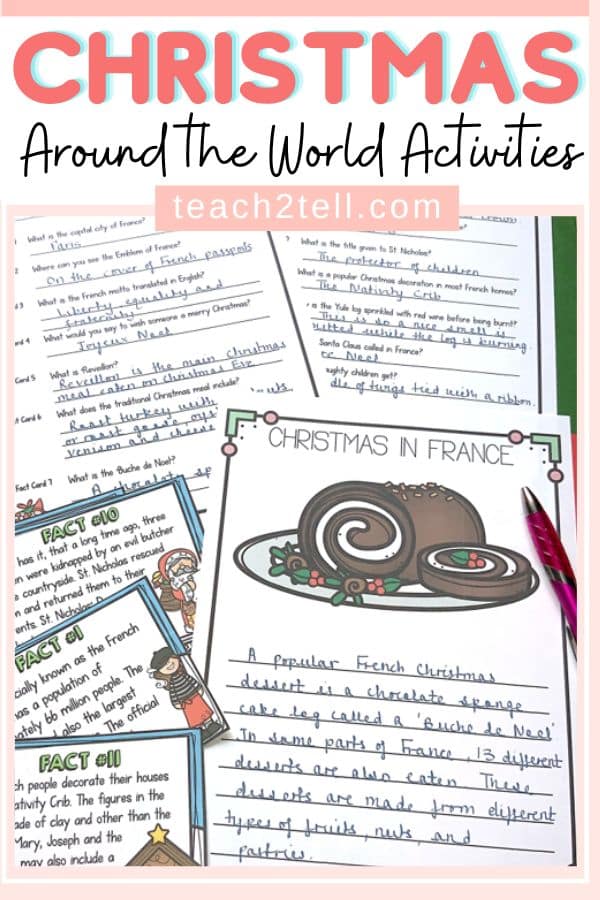 CHRISTMAS
Around the World Activities
teach2tell.com
What is the capital city of France?
Paris
Where can you see the Emblem of France?
On the cover of French passports
What is the French motto translated in English?
Liberty, equality and
fraternity
What would you say to wish someone a merry Christmas?
Joyeux Noel
Card 5 What is Reveillon?
Reveillon is the main christmas
meal eaten on christmas Eve
Card 6 What does the traditional Christmas meal include?
Roast turkey with
or roast goose,
venison and cheese
Fact Card 7 What is the Buche de Noel?
A chocolaty
What is the title given to St. Nicholas?
The protector of children
What is a popular Christmas decoration in most French homes?
The Nativity Crib
is the Yule log sprinkled with red wine before being burnt?
This is so a nice smell is
while the log is burning.
Santa Claus called in France?
Noel
children get?
of twigs tied with a ribbon.
FACT #10
has it, that a long time ago, three
were kidnapped by an evil butcher
countryside. St. Nicholas rescued
and returned them to their
St. Nicholas
FACT #1
known as the French
has a population of
66 million people. The
also the largest
The official
FACT #11
people decorate their houses
Crib. The figures in the
of clay and other than the
Mary, Joseph and the
may also include a
CHRISTMAS IN FRANCE
A popular French Christmas
dessert is a chocolate sponge
cake log called a 'Buche de Noel'
In some parts of France, 13 different
desserts are also eaten. These
desserts are made from different
types of fruits, nuts, and
pastries.